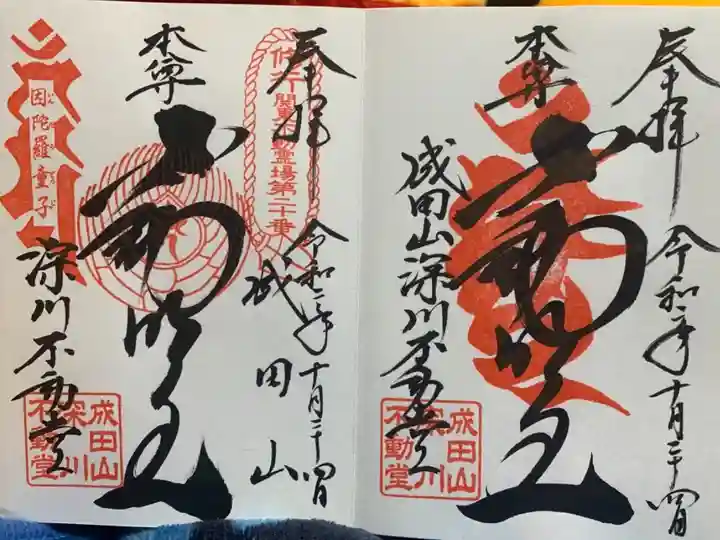 奉拝
令和二年十月二十四日
本尊
不動明王
成田山深川不動堂
成田山
深川
不動堂
奉拝
令和二年十月二十四日
関東不動霊場第二十番
成田山
本尊
不動明王
深川不動堂
因陀羅童子
成田山
深川
不動堂